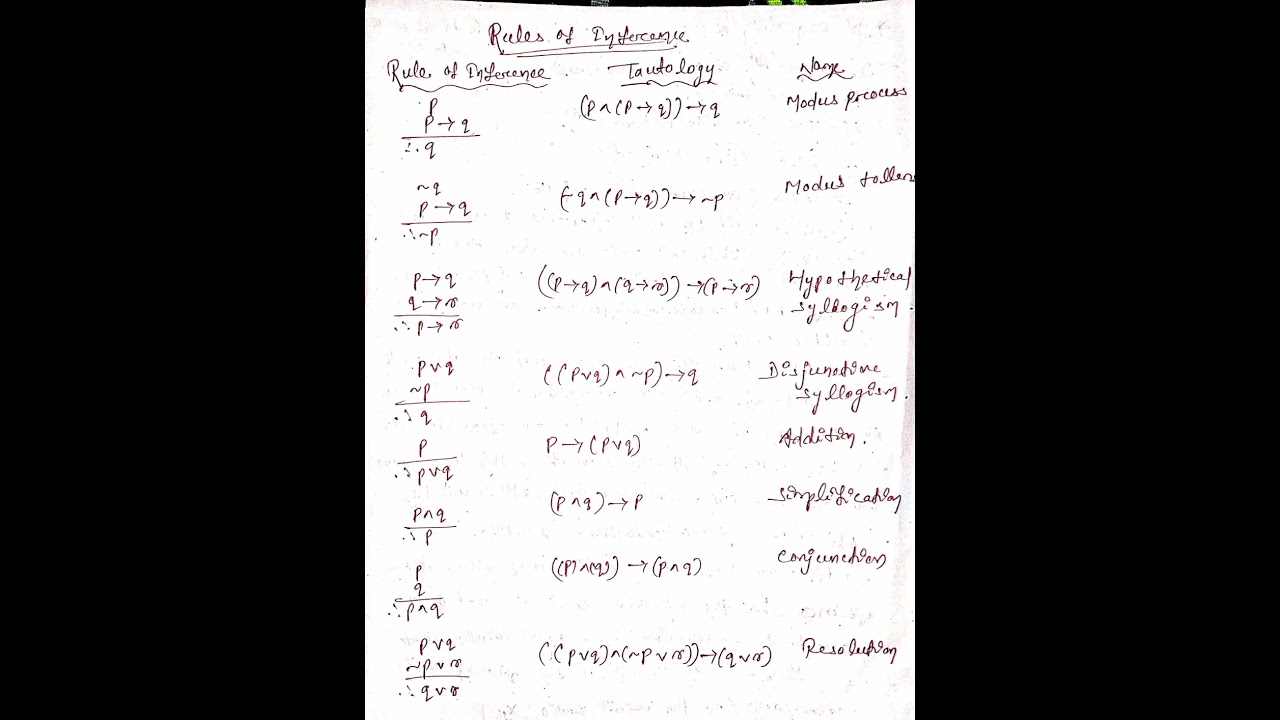 Rules of Inference
Rule of Inference Tautology Name
p (p ∧ (p → q)) → q Modus process
p → q
∴ q
~q (¬q ∧ (p → q)) → ~p Modus tollens
p → q
∴ ~p
p → q ((p → q) ∧ (q → r)) → (p → r) Hypothetical
q → r syllogism.
∴ p → r
p ∨ q ((p ∨ q) ∧ ~p) → q Disjunctive
~p syllogism.
∴ q
p P → (p ∨ q) Addition.
∴ p ∨ q
p ∧ q (p ∧ q) → p Simplification
∴ p
p ((p) ∧ (q)) → (p ∧ q) Conjunction
q
∴ p ∧ q
p ∨ q ((p ∨ q) ∧ (~p ∨ r)) → (q ∨ r) Resolution
~p ∨ r
∴ q ∨ r